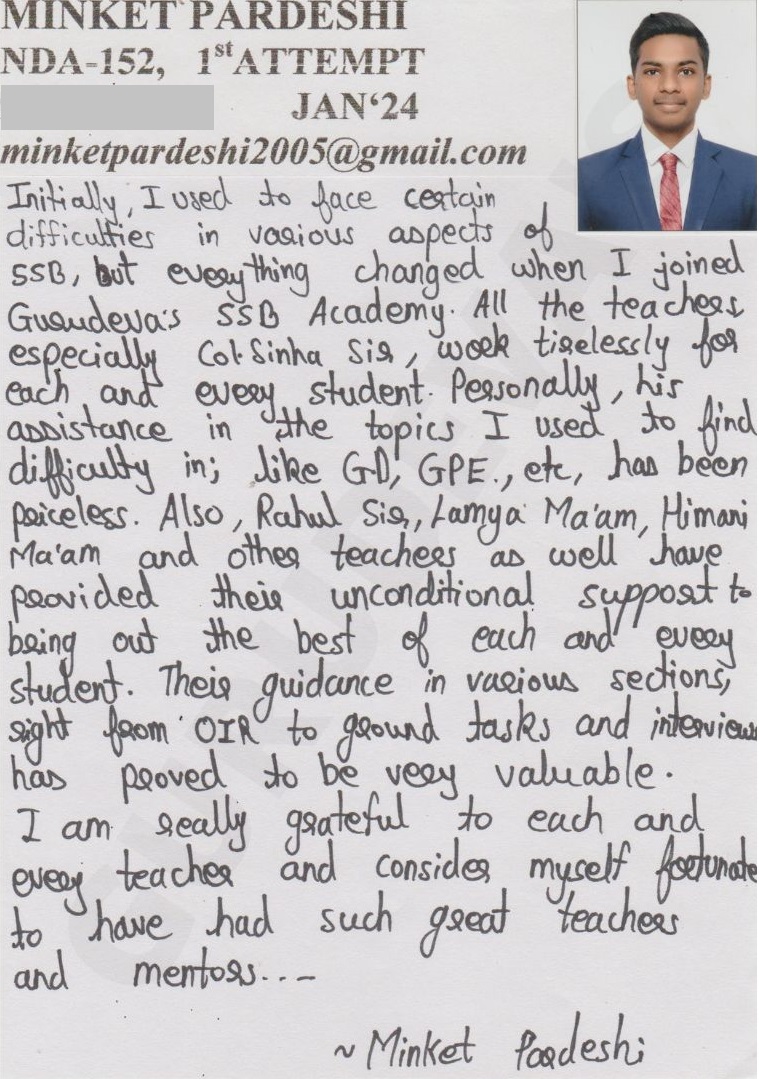 MINKET PARDESHI
NDA-152, 1st ATTEMPT
JAN‘24
minketpardeshi2005@gmail.com
Initially, I used to face certain
difficulties in various aspects of
SSB, but everything changed when I joined
Gurudeva's SSB Academy. All the teachers,
especially Col. Sinha Sir, work tirelessly for
each and every student. Personally, his
assistance in the topics I used to find
difficulty in; like GD, GPE., etc, has been
priceless. Also, Rahul Sir, Lamya Ma'am, Himani
Ma'am and other teachers as well have
provided their unconditional support to
bring out the best of each and every
student. Their guidance in various sections,
right from OIR to ground tasks and interview
has proved to be very valuable.
I am really grateful to each and
every teacher and consider myself fortunate
to have had such great teachers
and mentors...-
~ Minket Pardeshi